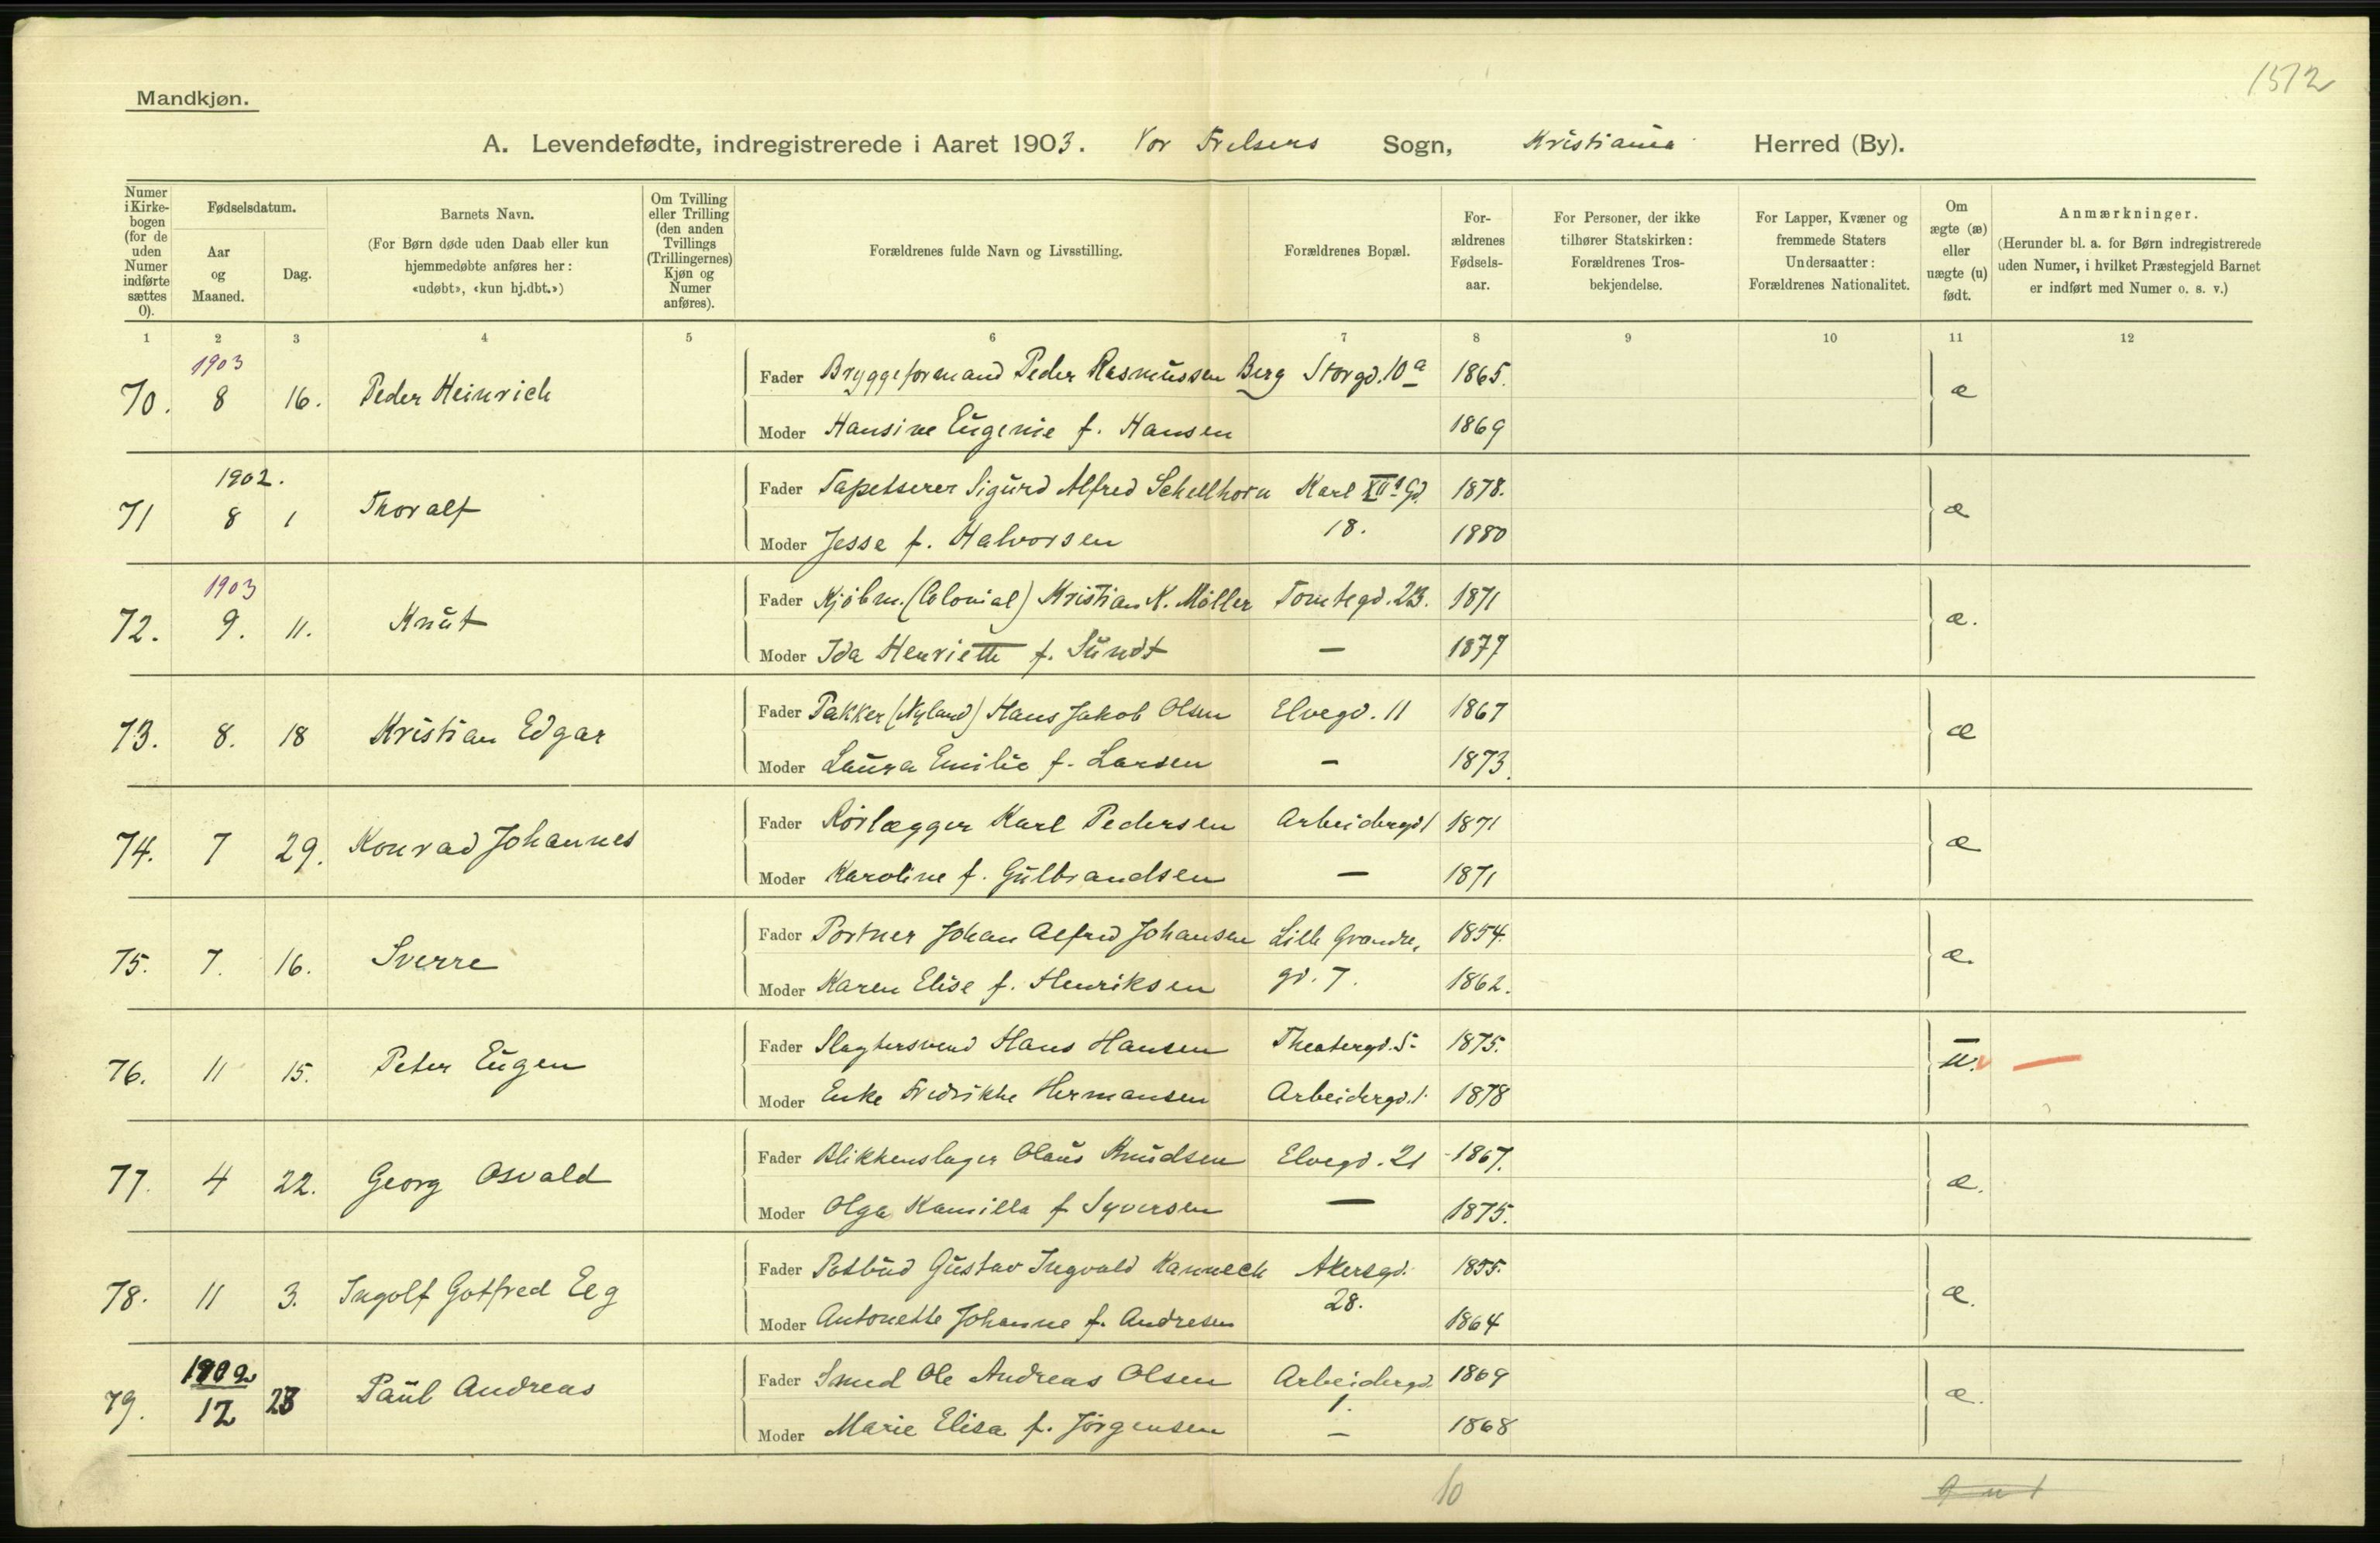 1512
Mandkjøn.
A. Levendefødte, indregistrerede i Aaret 1903. Vor Frelsers Sogn, Kristiania Herred (By).
Numer i Kirke-bogen (for de uden Numer indførte sættes 0).
Fødselsdatum.
Aar og Maaned.
Dag.
Barnets Navn.
(For Børn døde uden Daab eller kun hjemmedøbte anføres her: «udøbt», «kun hj.dbt.»)
Om Tvilling eller Trilling (den anden Tvillings (Trillingernes) Kjøn og Numer anføres).
Forældrenes fulde Navn og Livsstilling.
Forældrenes Bopæl.
For-ældrenes Fødsels-aar.
For Personer, der ikke tilhører Statskirken: Forældrenes Tros-bekjendelse.
For Lapper, Kvæner og fremmede Staters Undersaatter: Forældrenes Nationalitet.
Om ægte (æ) eller uægte (u) født.
Anmærkninger.
(Herunder bl. a. for Børn indregistrerede uden Numer, i hvilket Præstegjeld Barnet er indført med Numer o. s. v.)
1 2 3 4 5 6 7 8 9 10 11 12
1903
70. 8 16. Peder Heinrich Fader Bryggeformand Peder Rasmussen Berg Storgd. 10a 1865. æ
Moder Hansine Eugenie f. Hansen 1869
1902.
71 8 1 Thoralf Fader Tapetserer Sigurd Alfred Schellhorn Karl XII's Gd. 1878. æ
Moder Jesse f. Halvorsen 18. 1880
1903
72. 9. 11. Knut Fader Kjøbm. (Colonial) Kristian K. Møller Tomtegd. 23. 1871 æ.
Moder Ida Henriette f. Sundt — 1877
73. 8. 18 Kristian Edgar Fader Pakker (Nyland) Hans Jakob Olsen Elvegd. 11 1867 æ
Moder Laura Emilie f. Larsen — 1873.
74. 7 29. Konrad Johannes Fader Rørlægger Karl Pedersen Arbeidergd 1 1871 æ
Moder Karoline f. Gulbrandsen — 1871
75. 7. 16. Sverre Fader Portner Johan Alfred Johansen Lille Grændse, 1854. æ.
Moder Karen Elise f. Henriksen gd. 7. 1862.
76. 11 15. Peter Eugen Fader Slagtersvend Hans Hansen Theatergd. 5 1875. u. —
Moder Enke Fredrikke Hermansen Arbeidergd. 1. 1878
77. 4 22. Georg Osvald Fader Blikkenslager Olaus Knudsen Elvegd. 21 1867. æ.
Moder Olga Kamilla f Syversen — 1875.
78. 11 3. Ingolf Gotfred Eeg Fader Postbud Gustav Ingvald Kannech Akersgd. 1855. æ.
Moder Antonette Johanne f. Andresen 28. 1864
1902
79. 12 28 Paul Andreas Fader Smed Ole Andreas Olsen Arbeidergd. 1869 æ.
1.
Moder Marie Elisa f. Jørgensen — 1868
10 9 u 1